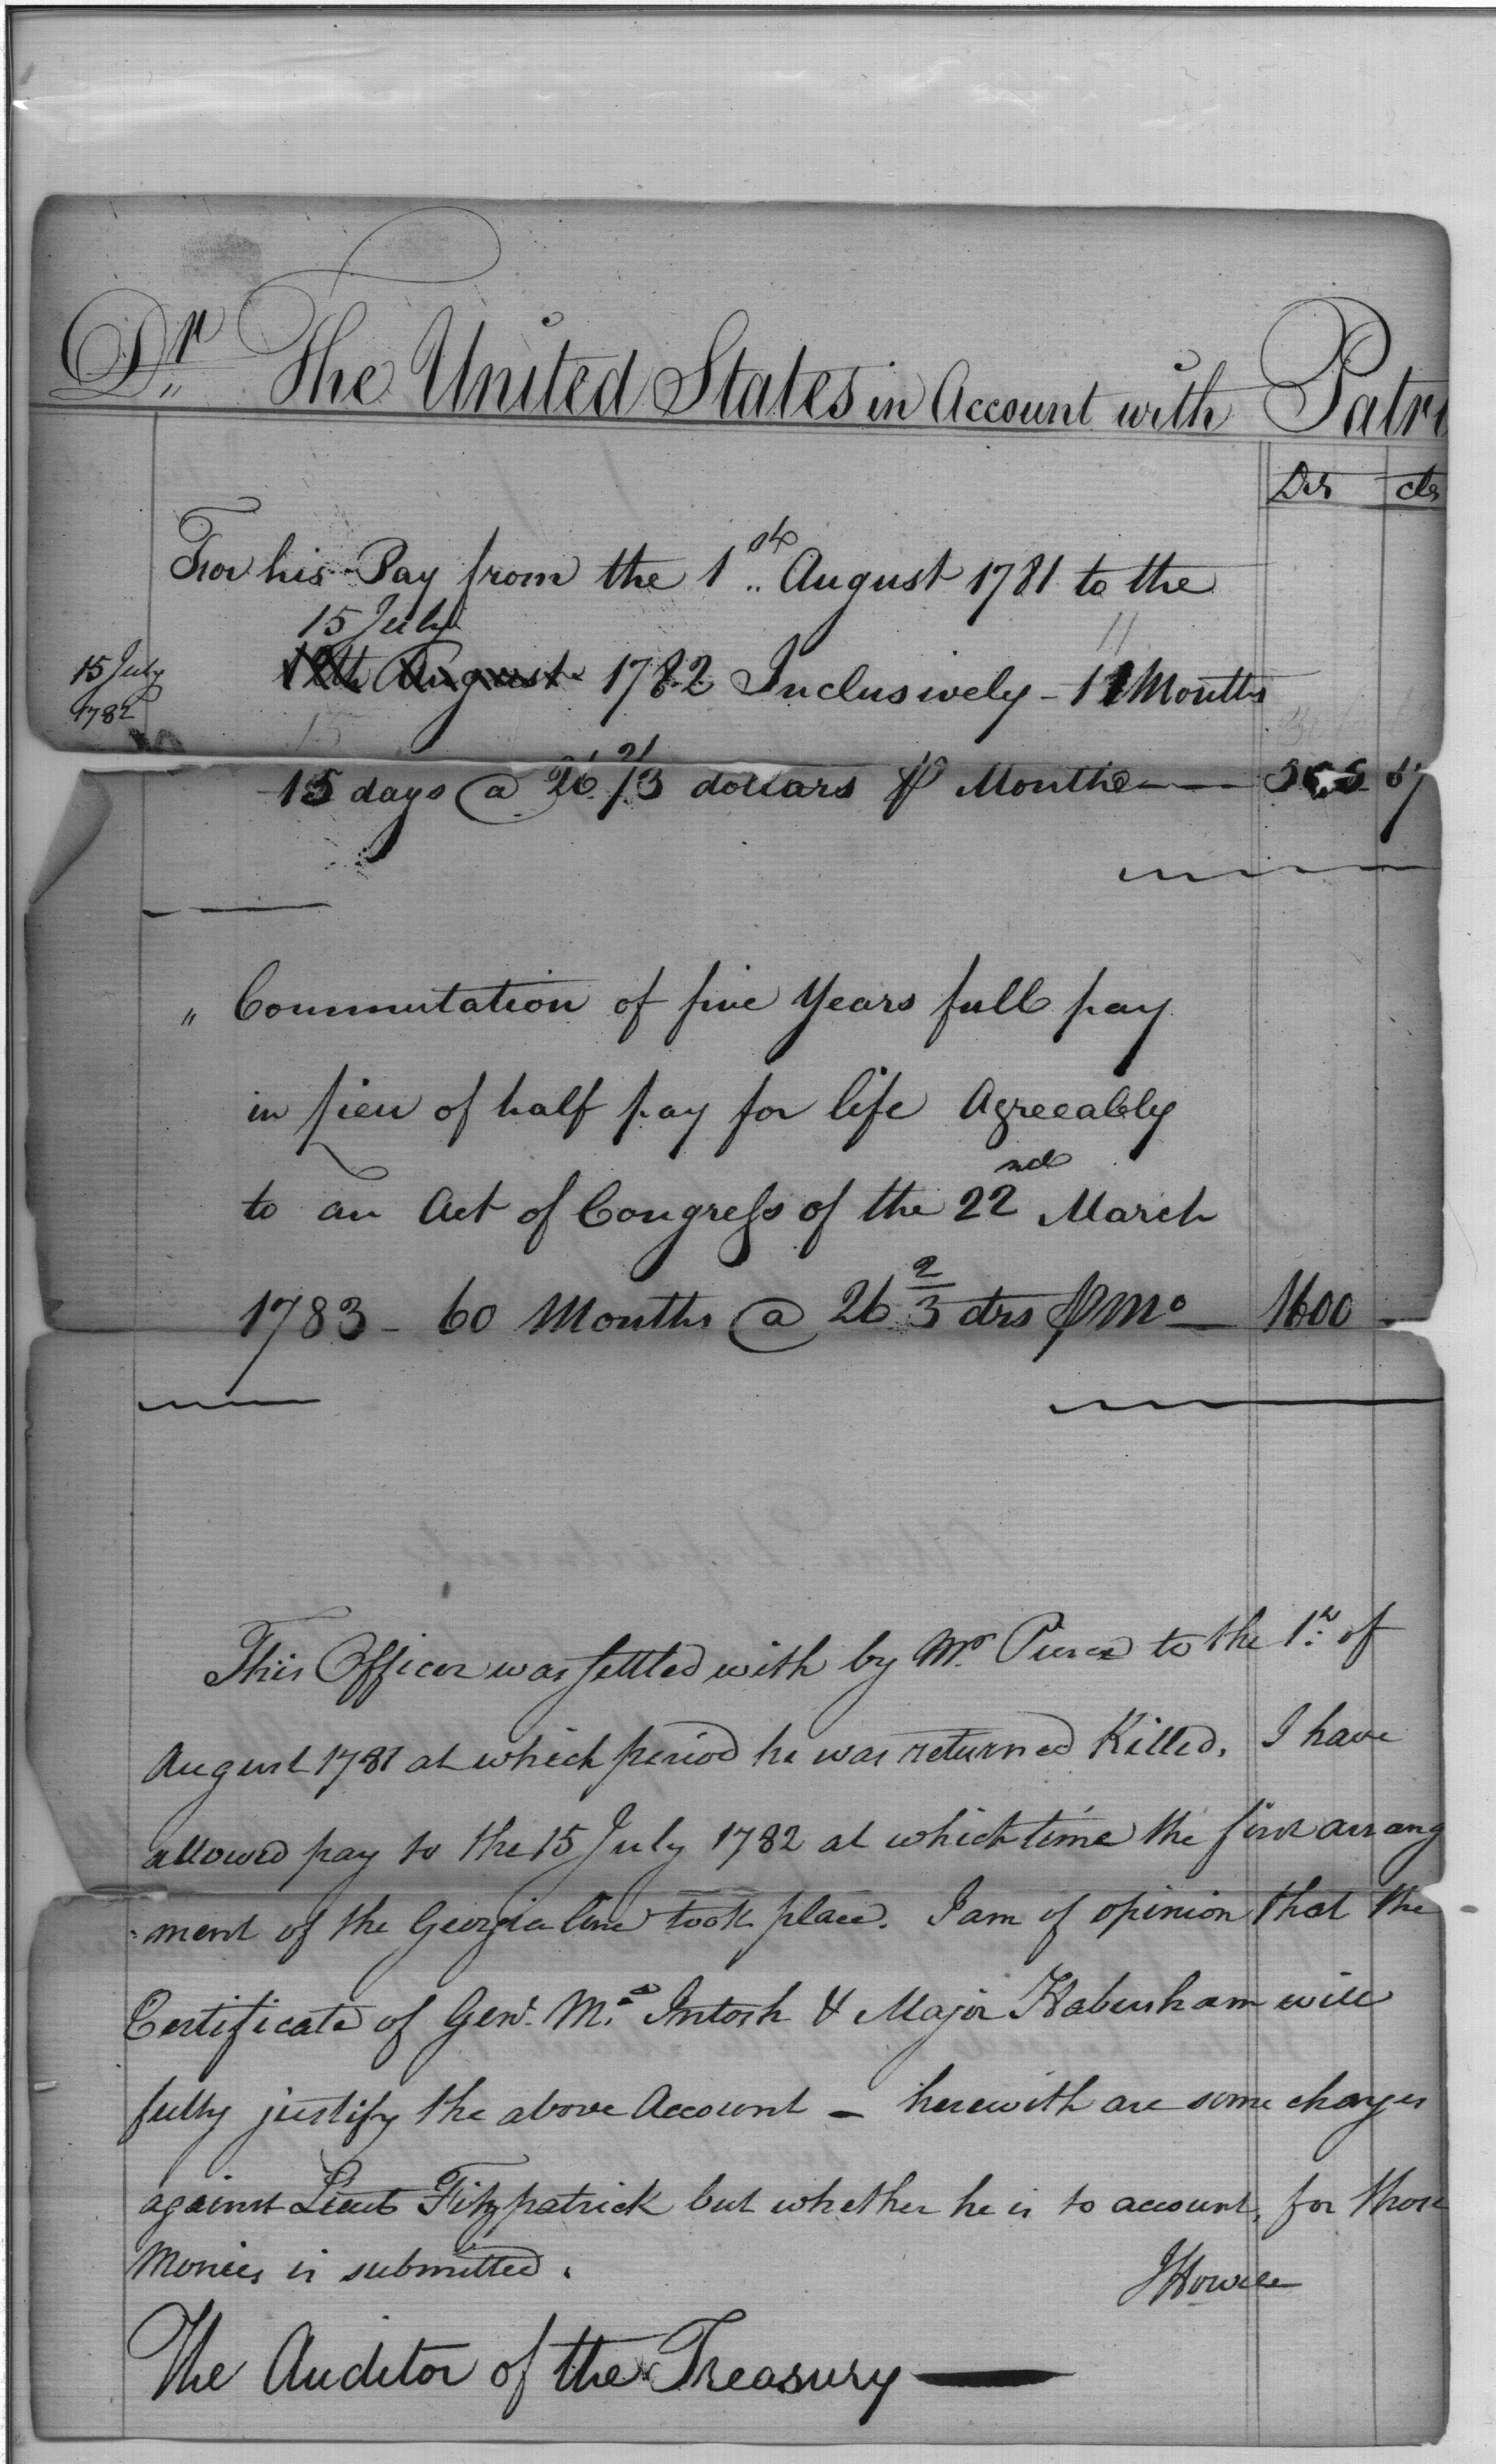 Dr The United States in Account with Patri
Drs cts
For his Pay from the 1st August 1781 to the
15 July
15 July 1782
August 1782 Inclusively - 11 Months
11
15
15 days @ 26 2/3 dollars ⅌ Month
Commutation of five Years full pay
in lieu of half pay for life Agreeably
to an Act of Congress of the 22nd March
1783 - 60 Months @ 26 2/3 drs ⅌ Mo 1600
This Officer was settled with by Mr. Pierce to the 1st of
August 1781 at which period he was returned Killed. I have
allowed pay to the 15 July 1782 at which time the first arrang
ment of the Georgia line took place. I am of opinion that the
Certificate of Genl. Mc Intosh & Major Habersham will
fully justify the above Account - herewith are some charges
against Lieut Fitzpatrick but whether he is to account, for those
Monies is submitted.
JHowell
The Auditor of the Treasury